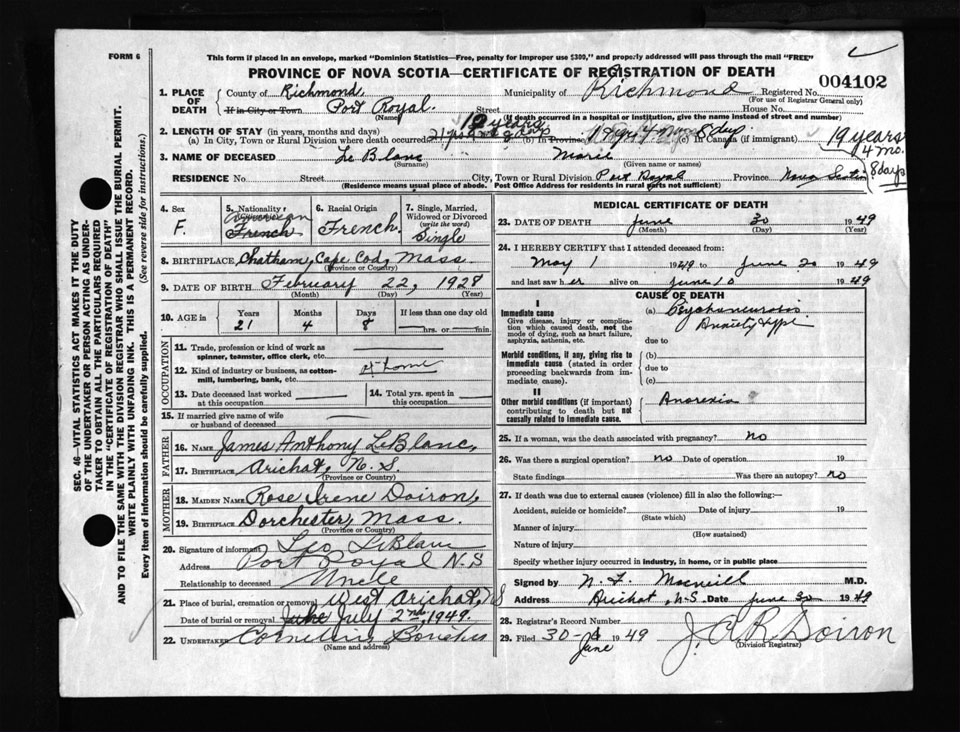 FORM 6
This form if placed in an envelope, marked "Dominion Statistics—Free, penalty for improper use $300," and properly addressed will pass through the mail "FREE"
PROVINCE OF NOVA SCOTIA—CERTIFICATE OF REGISTRATION OF DEATH
004102
1. PLACE OF DEATH
County of Richmond Municipality of Richmond Registered No.
(For use of Registrar General only)
If in City or Town Port Royal. Street House No.
(Name) (If death occurred in a hospital or institution, give the name instead of street and number)
2. LENGTH OF STAY (in years, months and days)
19 years
(a) In City, Town or Rural Division where death occurred (b) In Province (c) In Canada (if immigrant)
19 years
4 mo.
8 days
3. NAME OF DECEASED Le Blanc Marie
(Surname) (Given name or names)
RESIDENCE No. Street City, Town or Rural Division Port Royal Province Nova Scotia
(Residence means usual place of abode. Post Office Address for residents in rural parts not sufficient)
SEC. 46—VITAL STATISTICS ACT MAKES IT THE DUTY
OF THE UNDERTAKER OR PERSON ACTING AS UNDER-
TAKER TO OBTAIN ALL THE PARTICULARS REQUIRED
IN THE "CERTIFICATE OF REGISTRATION OF DEATH"
AND TO FILE THE SAME WITH THE DIVISION REGISTRAR WHO SHALL ISSUE THE BURIAL PERMIT.
WRITE PLAINLY WITH UNFADING INK. THIS IS A PERMANENT RECORD.
Every item of information should be carefully supplied. (See reverse side for instructions.)
4. Sex
F.
5. Nationality
American
French
6. Racial Origin
French.
7. Single, Married, Widowed or Divorced
(write the word)
Single
8. BIRTHPLACE Chatham, Cape Cod, Mass.
(Province or Country)
9. DATE OF BIRTH February 22, 1928
(Month) (Day) (Year)
10. AGE in Years Months Days If less than one day old
21 4 8 hrs. or min.
OCCUPATION
11. Trade, profession or kind of work as
spinner, teamster, office clerk, etc.
12. Kind of industry or business, as cotton-
mill, lumbering, bank, etc. at home
13. Date deceased last worked
at this occupation
14. Total yrs. spent in
this occupation
15. If married give name of wife
or husband of deceased
FATHER
16. NAME James Anthony LeBlanc,
17. BIRTHPLACE Arichat, N. S.
(Province or Country)
MOTHER
18. MAIDEN NAME Rose Irene Doiron,
19. BIRTHPLACE Dorchester, Mass.
(Province or Country)
20. Signature of informant Leo LeBlanc
Address Port Royal N.S
Relationship to deceased Uncle
21. Place of burial, cremation or removal West Arichat, NS
Date of burial or removal June July 2nd, 1949.
22. UNDERTAKER
(Name and address)
MEDICAL CERTIFICATE OF DEATH
23. DATE OF DEATH June 30 1949
(Month) (Day) (Year)
24. I HEREBY CERTIFY that I attended deceased from:
May 1 1949 to June 20 1949
and last saw her alive on June 10 1949
CAUSE OF DEATH
I
Immediate cause
Give disease, injury or complica-
tion which caused death, not the
mode of dying, such as heart failure,
asphyxia, asthenia, etc.
(a) Psychoneurosis
Anxiety type
due to
Morbid conditions, if any, giving rise to
immediate cause (stated in order
proceeding backwards from im-
mediate cause).
(b)
due to
(c)
II
Other morbid conditions (if important)
contributing to death but not
causally related to immediate cause.
Anorexia
25. If a woman, was the death associated with pregnancy? no
26. Was there a surgical operation? no Date of operation 19
State findings Was there an autopsy? no
27. If death was due to external causes (violence) fill in also the following:—
Accident, suicide or homicide? Date of injury 19
(State which)
Manner of injury
(How sustained)
Nature of injury
Specify whether injury occurred in industry, in home, or in public place
Signed by M.D.
Address Arichat, N.S. Date June 30 1949
28. Registrar's Record Number
29. Filed 30- June 1949 J. A. R. Doiron
(Division Registrar)